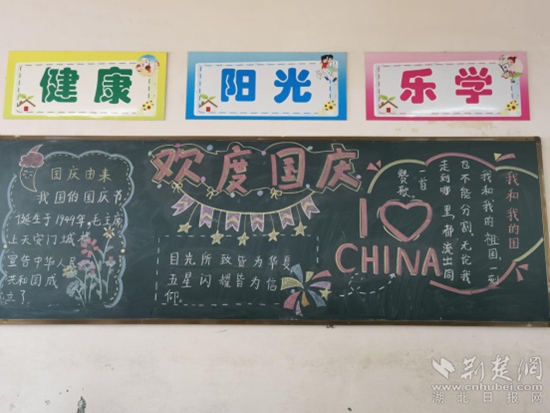 健康
阳光
乐学
国庆由来
我国的国庆节
诞生于1949年,毛主席
上天安门城楼
宣告中华人民
共和国成
立了
欢度国庆
目光所致皆为华夏
五星闪耀皆为信
仰.
I
CHINA
我和我的国
我和我的祖国一刻
不能分割无论我
走到哪里,都流出
一首
赞歌
荆楚網
www.cnhubei.com
湖北日报网